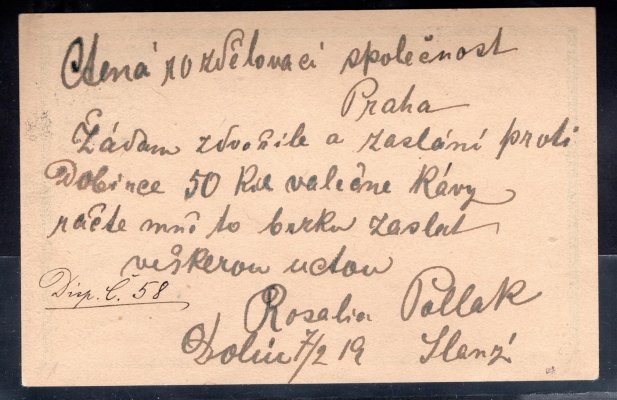 Ctená rozdělovací společnost
Praha
Žádam zdvořile a zaslání proti
Dobirce 50 valečne kávy
račte mně to zaslat
veškerou uctou
Disp. č. 58
Rosalia Pollak
7/2 19